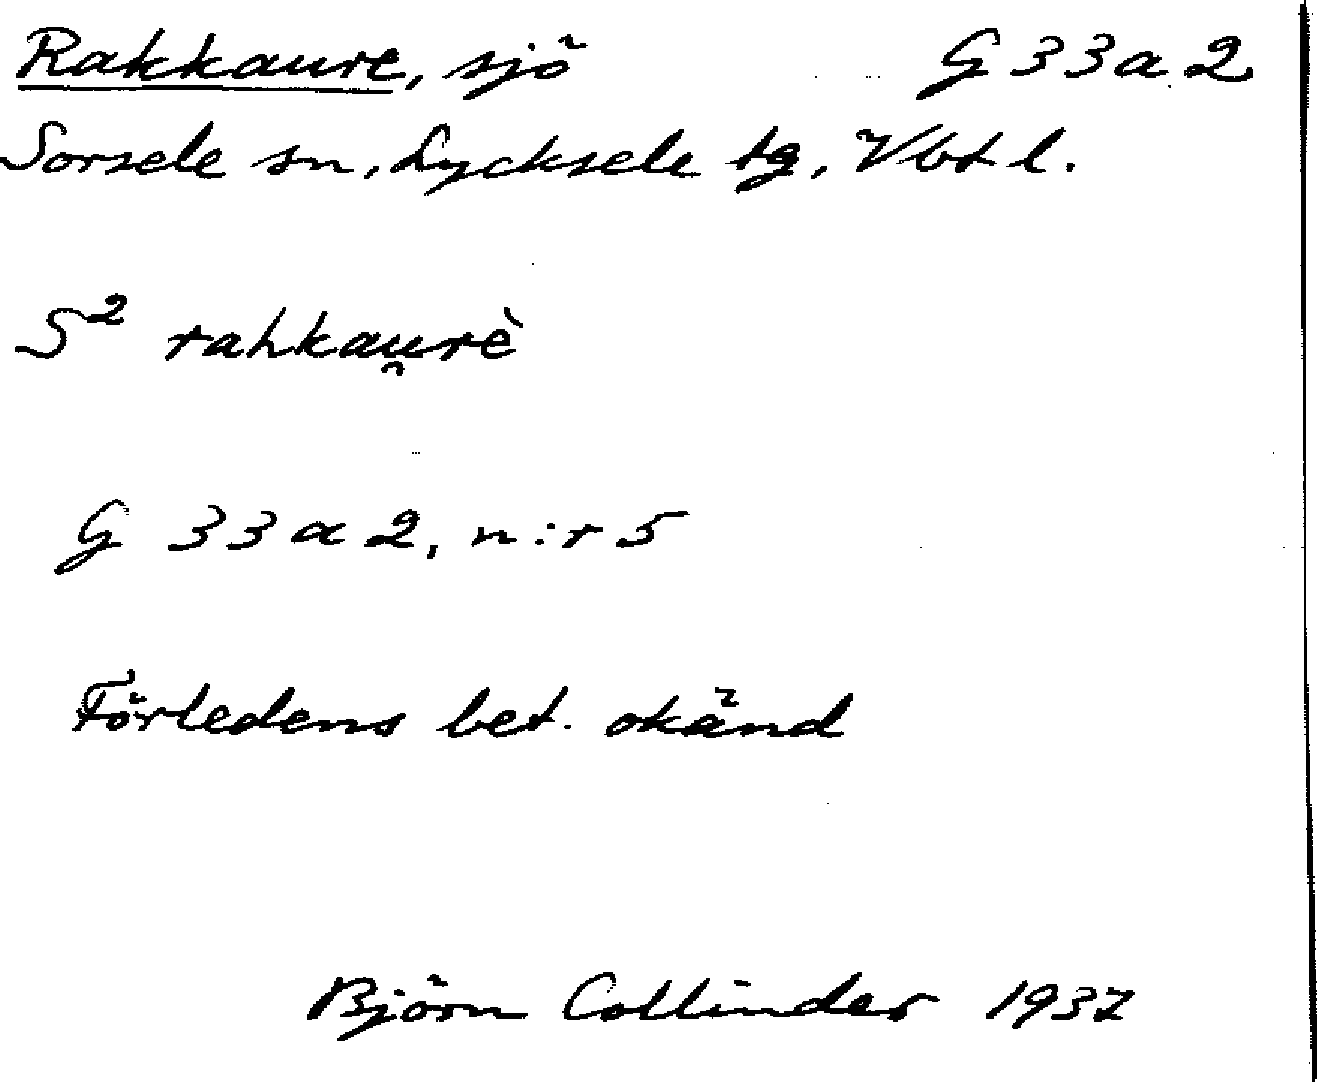 Rakkaure, sjö G 33 a 2
Sorsele sn, Lycksele tg, Vbtl.
S² rahkau̯rè
G 33 a 2, n:r 5
Förledens bet. okänd
Björn Collinder 1937